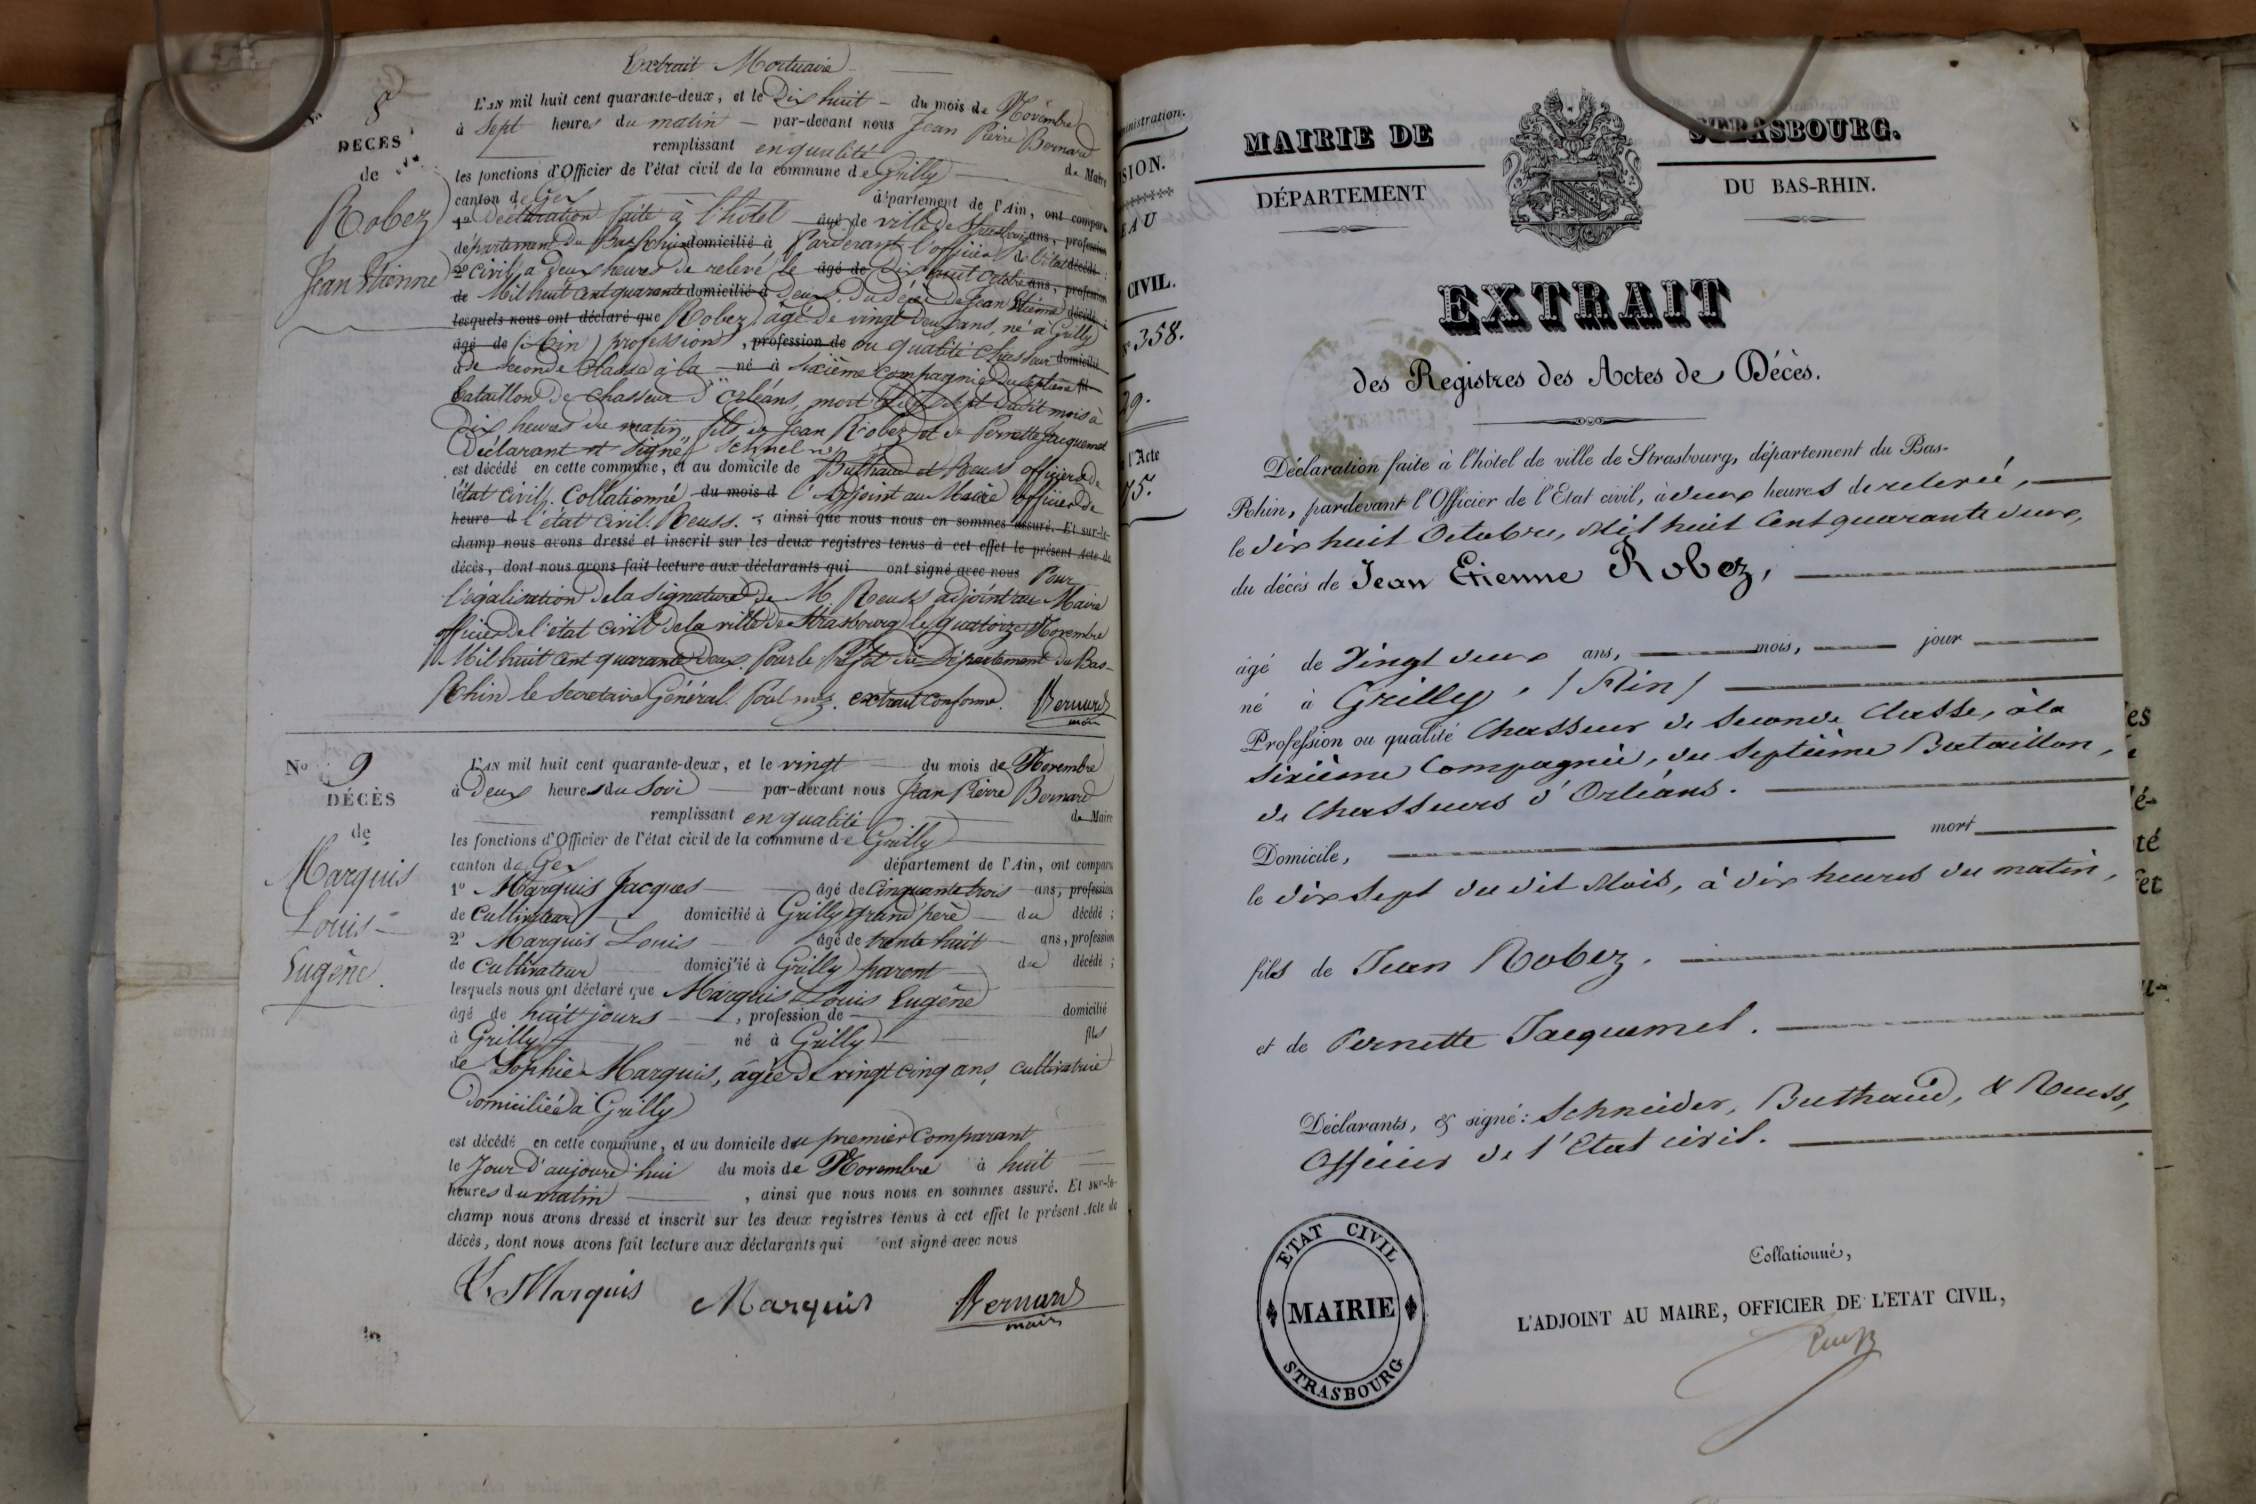 Extrait Mortuaire
No 8
DÉCÈS
de
Robez
Jean Etienne
L'AN mil huit cent quarante-deux, et le Dix huit du mois de Novembre
à Sept heures du matin par-devant nous Jean Pierre Bernard
remplissant en qualité de Maire
les fonctions d'Officier de l'état civil de la commune de Grilly
canton de Gex département de l'Ain, ont comparu
1º Déclaration faite à l'hôtel âgé de ville de Strasbourg ans, profession
département du Bas Rhin domicilié à Pardevant l'officier de l'état décédé ;
2º civil, a deux heures de relevé le âgé de dix huit octobre ans, profession
de Mil huit cent quarante domicilié à deux. du décès de Jean Etienne décédé ;
lesquels nous ont déclaré que Robez, âgé de vingt deux ans, né à Grilly
âgé de (Ain) profession, profession de ou qualité chasseur domicilié
à de seconde Classe à la né à sixième compagnie du septième fil
bataillon de chasseur d'Orléans, mort le dix sept dudit mois à
Dix heures du matin, fils de Jean Robez et de Pernette Jacquemet
Déclarant et signé
est décédé en cette commune, et au domicile de Buthaud et Reuss officiers de
l'état civil. Collationné du mois d l'adjoint au Maire officier de
heure d l'état civil. Reuss. , ainsi que nous nous en sommes assuré. Et sur-le-
champ nous avons dressé et inscrit sur les deux registres tenus à cet effet le présent Acte de
décès, dont nous avons fait lecture aux déclarants qui ont signé avec nous Pour
légalisation de la signature de M Reuss adjoint au Maire
officier de l'état civil de la ville de Strasbourg le quatorze Novembre
Mil huit cent quarante deux. Pour le Préfet du Département du Bas-
Rhin le secrétaire Général. extrait conforme. Bernard
maire
No 9
DÉCÈS
de
Marquis
Louis-
Eugène.
L'AN mil huit cent quarante-deux, et le vingt du mois de Novembre
à Deux heures du Soir par-devant nous Jean Pierre Bernard
remplissant en qualité de Maire
les fonctions d'Officier de l'état civil de la commune de Grilly
canton de Gex département de l'Ain, ont comparu
1º Marquis Jacques âgé de Cinquante trois ans, profession
de Cultivateur domicilié à Grilly grand'père du décédé ;
2º Marquis Louis âgé de trente huit ans, profession
de Cultivateur domicilié à Grilly parent du décédé ;
lesquels nous ont déclaré que Marquis Louis Eugène
âgé de huit jours , profession de domicilié
à Grilly né à Grilly fils
de Sophie Marquis, âgée de vingt cinq ans, cultivatrice
domiciliée à Grilly
est décédé en cette commune, et au domicile du premier Comparant,
le Jour d'aujourd'hui du mois de Novembre à huit
heures du matin , ainsi que nous nous en sommes assuré. Et sur-le-
champ nous avons dressé et inscrit sur les deux registres tenus à cet effet le présent Acte de
décès, dont nous avons fait lecture aux déclarants qui ont signé avec nous
L. Marquis Marquis Bernard
maire
ministration.
SION.
EAU
CIVIL.
No 358.
29.
l'Acte
75.
MAIRIE DE STRASBOURG.
DÉPARTEMENT DU BAS-RHIN.
EXTRAIT
des Registres des Actes de Décès.
Déclaration faite à l'hôtel de ville de Strasbourg, département du Bas-
Rhin, pardevant l'Officier de l'Etat civil, à deux heures de relevée,
le dix huit Octobre, Mil huit Cent quarante deux,
du décès de Jean Etienne Robez,
âgé de Vingt deux ans, mois, jour
né à Grilly, (Ain)
Profession ou qualité Chasseur de Seconde Classe, à la
sixième Compagnie, du Septième Bataillon,
de Chasseurs d'Orléans.
Domicile, mort
le dix sept du dit Mois, à dix heures du matin,
fils de Jean Robez.
et de Pernette Jacquemet.
Déclarants, & signé: Schneider, Buthaud, & Reuss,
Officier de l'Etat civil.
Collationné,
L'ADJOINT AU MAIRE, OFFICIER DE L'ETAT CIVIL,
Reuss
ETAT CIVIL
MAIRIE
STRASBOURG